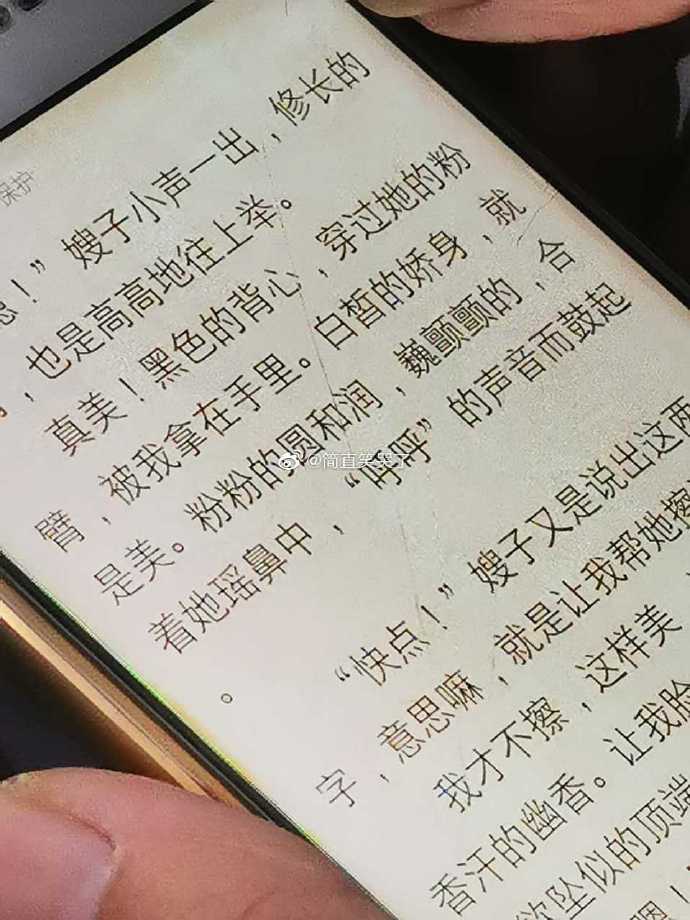 保护
！”嫂子小声一出，修长的
，也是高高地往上举。
真美！黑色的背心，穿过她的粉
臂，被我拿在手里。白皙的娇身，就
是美。粉粉的圆和润，巍颤颤的，合
着她瑶鼻中，“呼呼”的声音而鼓起
。
@简直笑哭了
“快点！”嫂子又是说出这两
字，意思嘛，就是让我帮她擦
我才不擦，这样美，
香汗的幽香。让我脸
坠似的顶端